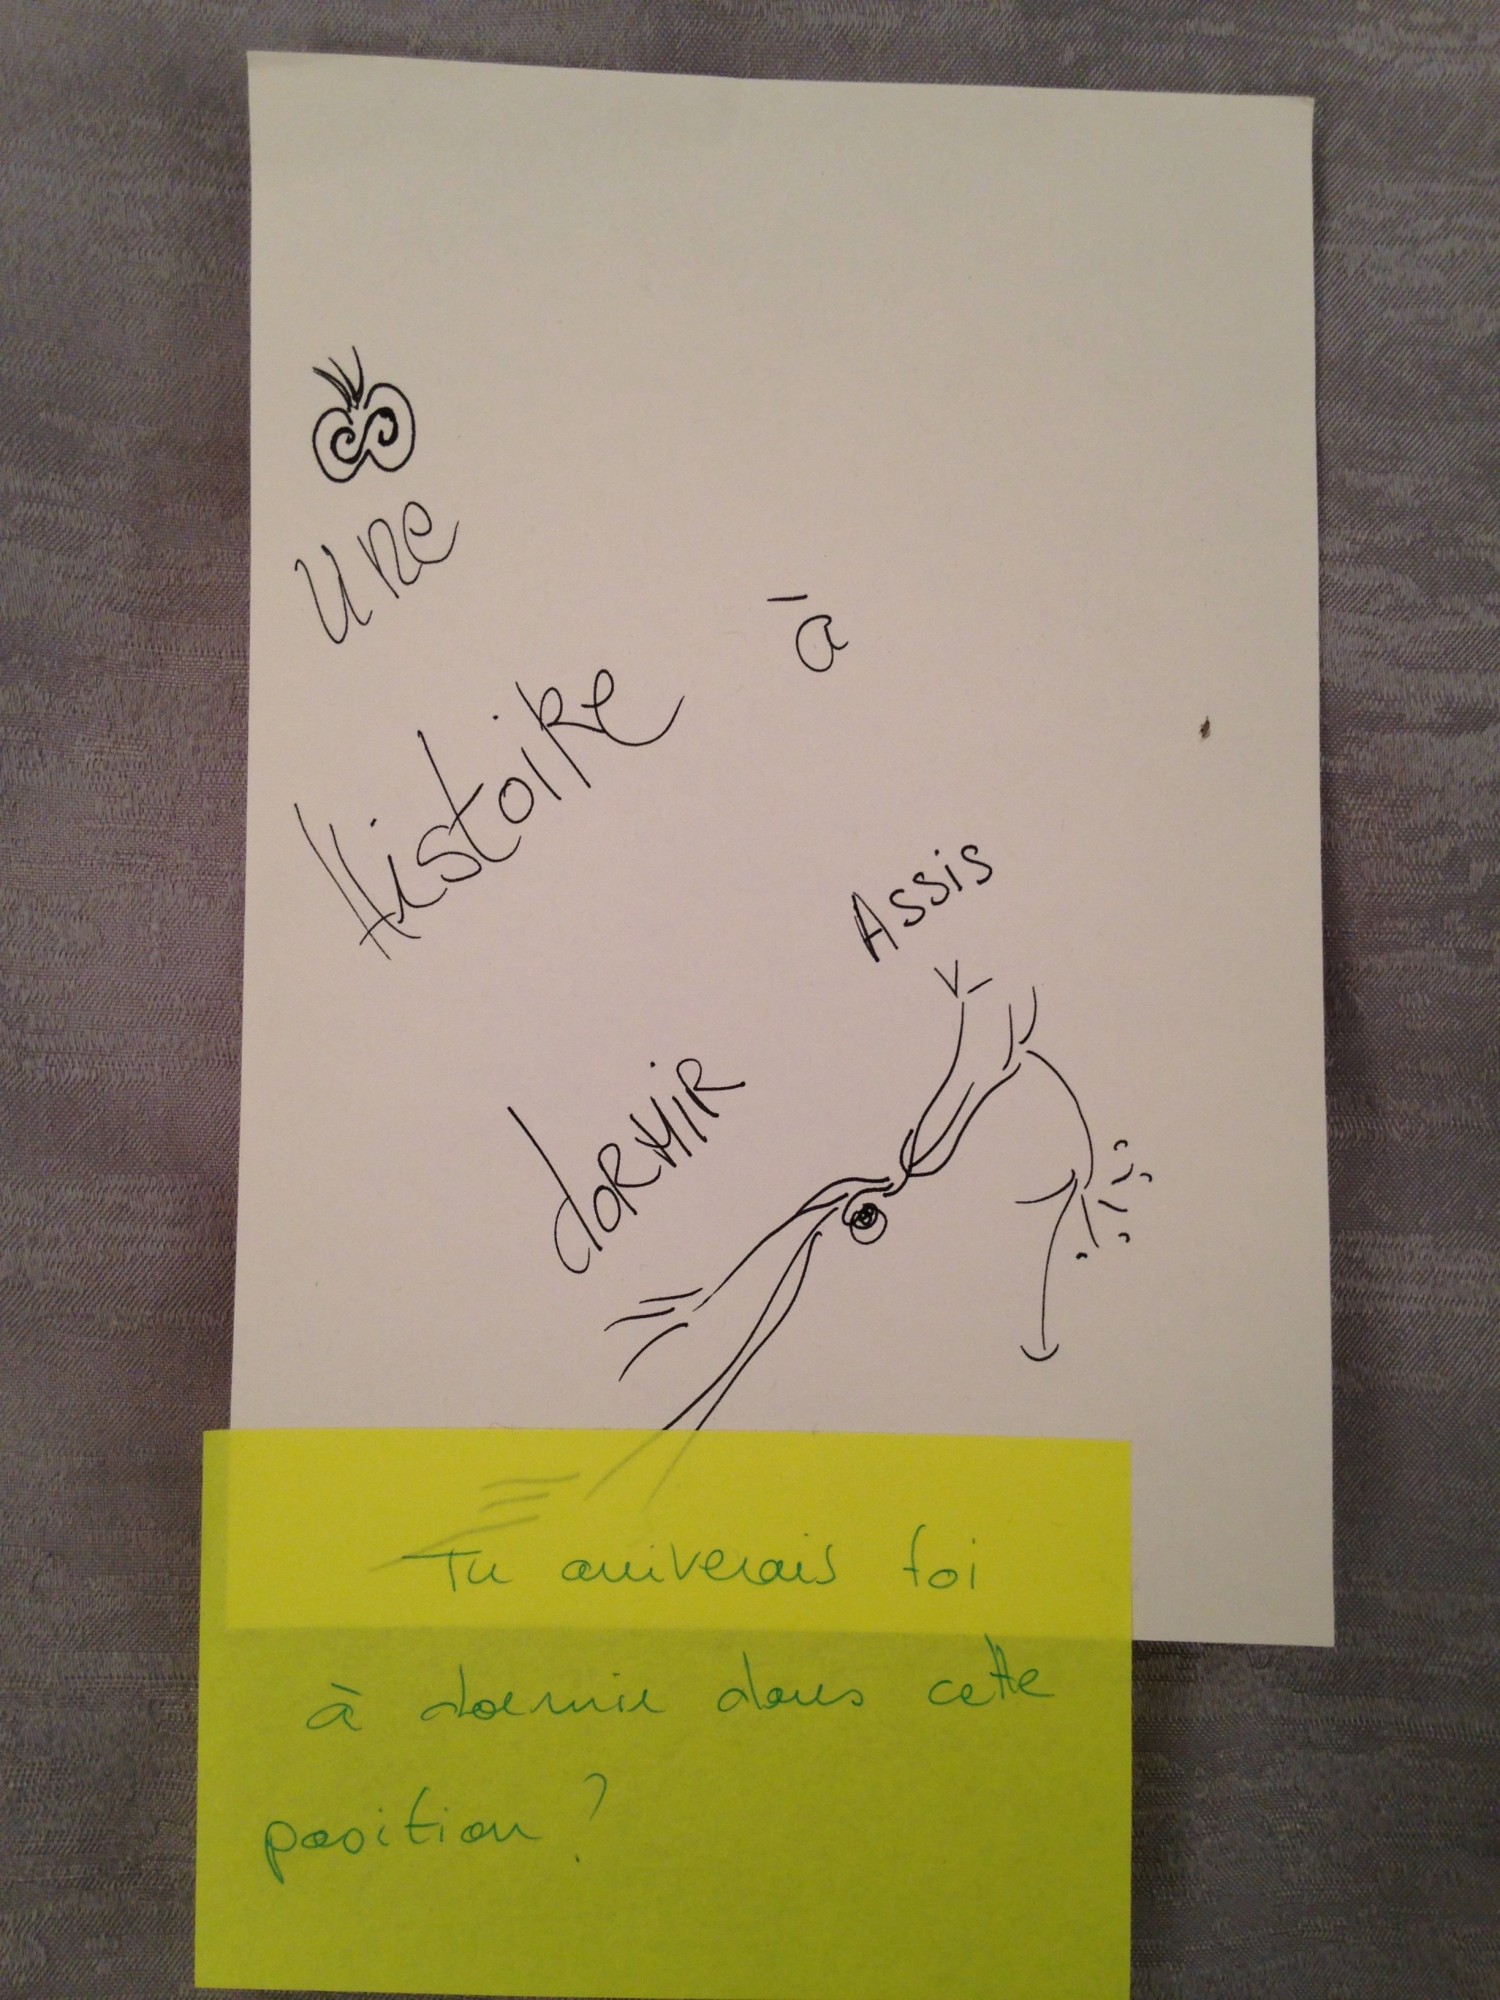 Une
Histoire à
dormir
Assis
Tu arriverais toi
à dormir dans cette
position ?